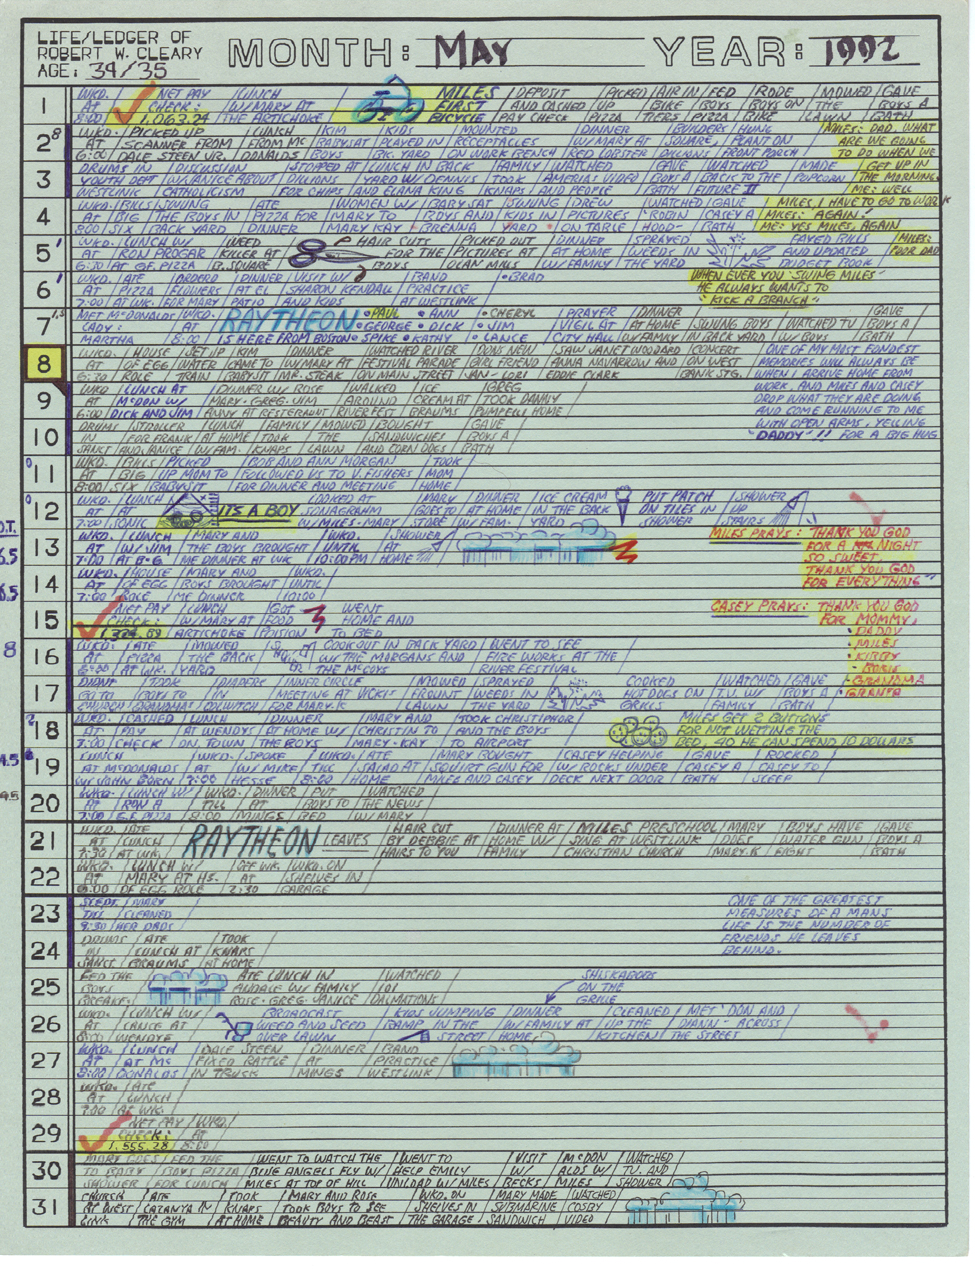 LIFE/LEDGER OF
ROBERT W. CLEARY
AGE: 34/35
MONTH: MAY
YEAR: 1992
1
WKD. / NET PAY / LUNCH / MILES / DEPOSIT / PICKED / AIR IN / FED / RODE / MOWED / GAVE
AT / CHECK: / W/ MARY AT / FIRST / AND CASHED / UP / BIKE / BOYS / BOYS ON / THE / BOYS A
8:00 / 1,063.24 / THE ARTICHOKE / BICYCLE / PAY CHECK / PIZZA / TIERS / PIZZA / BIKE / LAWN / BATH
2 8
WKD. / PICKED UP / LUNCH / KIM / KIDS / MOUNTED / DINNER / BUILDERS / HUNG
AT / SCANNER FROM / FROM MC / BABYSAT / PLAYED IN / RECEPTACLES / W/ MARY AT / SQUARE, / PLANT ON
6:00 / DALE STEEN JR. / DONALDS / BOYS / BK. YARD / ON WORK BENCH / RED LOBSTER / / FRONT PORCH
MILES: DAD, WHAT
ARE WE GOING
TO DO WHEN WE
GET UP IN
THE MORNING.
ME: WELL
MILES, I HAVE TO GO TO WORK
MILES: AGAIN!
ME: YES MILES, AGAIN
MILES:
POOR DAD
3
DRUMS IN / DISCUSSION / STOPPED AT / LUNCH IN BACK / FAMILY / WATCHED / GAVE / WATCHED / MADE
YOUTH DEPT / W/ JANICE ABOUT / DILLONS / YARD W/ DENNIS / TOOK / AMERICA VIDEO / BOY A / BACK TO THE / POPCORN
WESTLINK / CATHOLICISM / FOR CHIPS / AND ELANA KING / KNAPS / AND PEOPLE / BATH / FUTURE II
4
WKD. / BILLS / SWUNG / ATE / WOMEN W/ / BABY SAT / SWUNG / DREW / WATCHED / GAVE
AT / BIG / THE BOYS IN / PIZZA FOR / MARY TO / BOYS AND / KIDS IN / PICTURES / "ROBIN / CASEY A
8:00 / SIX / BACK YARD / DINNER / MARY KAY / BRENNA / YARD / ON TABLE / HOOD" / BATH
5 1
WKD. / LUNCH W/ / WEED / HAIR CUTS / PICKED OUT / DINNER / SPRAYED / PAYED BILLS
AT / RON PROGAR / KILLER AT / FOR THE / PICTURES AT / AT HOME / WEEDS IN / AND UPDATED
6:30 / AT GF. PIZZA / B. SQUARE / BOYS / OLAN MILLS / W/ FAMILY / THE YARD / BUDGET BOOK
6 1
WKD. / ATE / ORDERD / DINNER / VISIT W/ / BAND / • BRAD
AT / PIZZA / FLOWERS / AT EL / SHARON KENDALL / PRACTICE
7:00 / AT WK. / FOR MARY / PATIO / AND KIDS / AT WESTLINK
WHEN EVER YOU "SWING MILES"
HE ALWAYS WANTS TO
"KICK A BRANCH"
7 1.5
MET MCDONALDS / WKD. / RAYTHEON / • PAUL / • ANN / • CHERYL / PRAYER / DINNER / GAVE
LADY: / AT / • GEORGE / • DICK / • JIM / VIGIL AT / AT HOME / SWUNG BOYS / WATCHED TV / BOYS A
MARTHA / 8:00 / IS HERE FROM BOSTON / • SPIKE / • KATHY / • LANCE / CITY HALL / W/ FAMILY / IN BACK YARD / W/ BOYS / BATH
8
WKD. / HOUSE / SET UP / KIM / DINNER / WATCHED RIVER / DONS NEW / SAW JANET WOODARD / CONCERT
AT / OF EGG / WATER / CAME TO / W/ MARY AT / FESTIVAL PARADE / GIRL FRIEND / ANNA NAVARROW AND / WEST
6:30 / ROLE / TRAIN / BABYSIT / MR. STEAK / ON MAIN STREET / JAN-LORI / EDDIE CLARK / BANK STG.
ONE OF MY MOST FONDEST
MEMORIES WILL ALWAYS BE
WHEN I ARRIVE HOME FROM
WORK. AND MILES AND CASEY
DROP WHAT THEY ARE DOING
AND COME RUNNING TO ME
WITH OPEN ARMS, YELLING
"DADDY"!! FOR A BIG HUG
9
WKD / LUNCH AT / DINNER W/ ROSE / WALKED / ICE / GREG
AT / McDON W/ / MARY-GREG-JIM / AROUND / CREAM AT / TOOK DANNY
6:00 / DICK AND JIM / ANNY AT RESTERAUNT / RIVERFEST / BRAUMS / HOME
10
DRUMS / STROLLER / LUNCH / FAMILY / MOWED / BOUGHT / GAVE
IN / FOR FRANK / AT HOME / TOOK / THE / SANDWICHES / BOYS A
SANCT / AND JANICE / W/ FAM. / KNAPS / LAWN / AND CORN DOGS / BATH
11 0
WKD. / BILLS / PICKED / BOB AND ANN MORGAN / TOOK
AT / BIG / UP MOM TO / FOLLOWED US TO V. FISHERS / MOM
8:00 / SIX / BABYSIT / FOR DINNER AND MEETING / HOME
12 0
WKD. / LUNCH / LOOKED AT / MARY / DINNER / ICE CREAM / PUT PATCH / SHOWER
AT / AT / ITS A BOY / SONAGRAHM / GOES TO / AT HOME / IN THE BACK / ON TILES IN / UP
7:00 / SONIC / W/ MILES-MARY / STORE / W/ FAM. / YARD / SHOWER / STAIRS
O.T.
13
WKD. / LUNCH / MARY AND / WKD. / SHOWER
AT / W/ JIM / THE BOYS BROUGHT / UNTIL / AT
7:00 / AT B-6 / ME DINNER AT WK / 10:00 PM / HOME
6.5
MILES PRAYS: THANK YOU GOD
FOR A NIGHT
SO SWEET.
THANK YOU GOD
FOR EVERYTHING"
14
WKD. / HOUSE / MARY AND / WKD.
AT / OF EGG / BOYS BROUGHT / UNTIL
7:00 / ROLE / ME DINNER / 10:00
6.5
15
NET PAY / LUNCH / GOT / WENT
CHECK: / W/ MARY AT / FOOD / HOME AND
1,324.89 / ARTICHOKE / POISION / TO BED
CASEY PRAYS: THANK YOU GOD
FOR MOMMY,
• DADDY
• MILES
• KIRBY
• BORIS
• GRANDMA
• GRANPA
16 8
WKD. / ATE / MOWED / COOKOUT IN BACK YARD / WENT TO SEE
AT / PIZZA / THE BACK / W/ THE MORGANS AND / FIRE WORKS AT THE
8:00 / AT WK. / YARD / THE MCCOYS / RIVER FESTIVAL
17
DIDNT / TOOK / DIAPERS / INNER CIRCLE / MOWED / SPRAYED / COOKED / WATCHED / GAVE
GO TO / BOYS TO / IN / MEETING AT VICKI / FROUNT / WEEDS IN / HOT DOGS ON / T.V. W/ / BOYS A
CHURCH / GRANDMAS / COLWITCH / FOR MARY-K / LAWN / THE YARD / GRILLS / FAMILY / BATH
18 2
WKD. / CASHED / LUNCH / DINNER / MARY AND / TOOK CHRISTOPHER
AT / PAY / AT WENDYS / AT HOME W/ / CHRISTIN TO / AND THE BOYS
7:00 / CHECK / ON TOWN / THE BOYS / MARY-KAY / TO AIRPORT
MILES GET 2 BUTTONS
FOR NOT WETTING THE
BED. 40 HE CAN SPEND 10 DOLLARS
19 4.5
LUNCH / WKD. / SPOKE / WKD. / ATE / MARY BOUGHT / CASEY HELPING / GAVE / ROCKED
AT MCDONALDS / AT / W/ MIKE / TILL / SALAD AT / SQUIRT GUN FOR / W/ ROCKS UNDER / CASEY A / CASEY TO
W/ JOHN BORN / 7:00 / HESSE / 8:00 / HOME / MILES AND CASEY / DECK NEXT DOOR / BATH / SLEEP
20
WKD. / LUNCH W/ / WKD. / DINNER / PUT / WATCHED
AT / RON A / TILL / AT / BOYS TO / THE NEWS
7:00 / G.F. PIZZA / 8:00 / MINGS / BED / W/ MARY
21
WKD. / ATE / RAYTHEON / LEAVES / HAIR CUT / DINNER AT / MILES PRESCHOOL / MARY / BOYS HAVE / GAVE
AT / LUNCH / BY DEBBIE AT / HOME W/ / SING AT WESTLINK / DOES / WATER GUN / BOYS A
7:30 / AT WK. / HAIRS TO YOU / FAMILY / CHRISTIAN CHURCH / MARY.K / FIGHT / BATH
22
WKD. / LUNCH W/ / OFF WK. / WKD. ON
AT / MARY AT HS. / AT / SHELVES IN
6:00 / OF EGG ROLE / 2:30 / GARAGE
23
SLEPT / MARY
TILL / CLEANED
9:30 / HER DADS
ONE OF THE GREATEST
MEASURES OF A MANS
LIFE IS THE NUMBER OF
FRIENDS HE LEAVES
BEHIND.
24
DRUMS / ATE / TOOK
IN / LUNCH AT / KNAPS
SANCT / BRAUMS / AT HOME
25
FED THE / ATE LUNCH IN / WATCHED
BOYS / ANDALE W/ FAMILY / 101
BREAKF. / ROSE-GREG-JANICE / DALMATIONS
SHISKABOBS
ON THE
GRILLE
26
WKD. / LUNCH W/ / BROADCAST / KIDS JUMPING / DINNER / CLEANED / MET DON AND
AT / LANCE AT / WEED AND SEED / RAMP IN THE / W/ FAMILY AT / UP THE / DIANN - ACROSS
8:00 / WENDYS / OVER LAWN / STREET / HOME / KITCHEN / THE STREET
27
WKD. / LUNCH / DALE STEEN / DINNER / BAND
AT / AT MC / FIXED RATTLE / AT / PRACTICE
8:00 / DONALDS / IN TRUCK / MINGS / WESTLINK
28
WKD. / ATE
AT / LUNCH
7:00 / AT WK.
29
NET PAY / WKD.
CHECK: / AT
1,555.28 / 8:00
30
MARY GOES / FED THE / WENT TO WATCH THE / WENT TO / VISIT / McDON / WATCHED
TO BABY / BOYS PIZZA / BLUE ANGELS FLY W/ / HELP EMILY / W/ / ALDS W/ / TV. AND
SHOWER / FOR LUNCH / MILES AT TOP OF HILL / UNLOAD W/ MILES / BECKS / MILES / SHOWER
31
CHURCH / ATE / TOOK / MARY AND ROSE / WKD. ON / MARY MADE / WATCHED
AT WEST / LAZANYA IN / KNAPS / TOOK BOYS TO SEE / SHELVES IN / SUBMARINE / COSBY
LINK / THE GYM / AT HOME / BEAUTY AND BEAST / THE GARAGE / SANDWICH / VIDEO